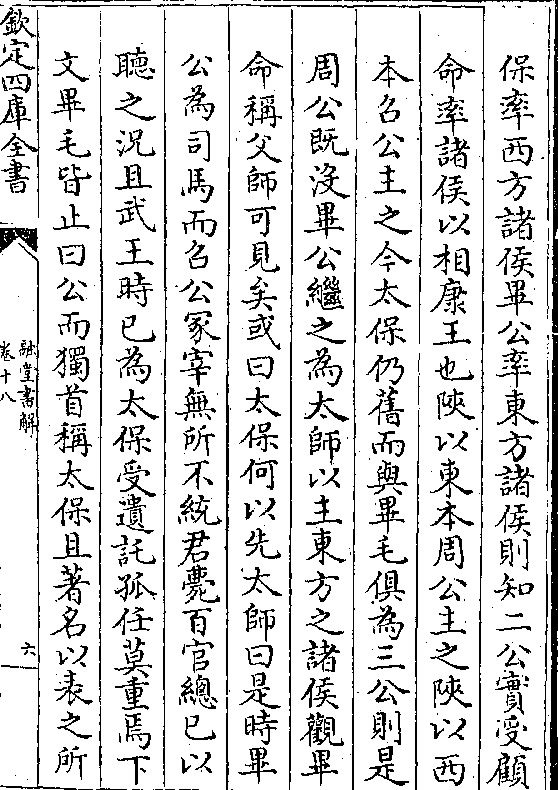 保率西方諸侯畢公率東方諸侯則知二公實受顧
命率諸侯以相康王也陜以東本周公主之陜以西
本召公主之今太保仍舊而與畢毛俱為三公則是
周公既沒畢公繼之為太師以主東方之諸侯觀畢
命稱父師可見矣或曰太保何以先太師曰是時畢
公為司馬而召公冢宰無所不統君薨百官總已以
聽之況且武王時已為太保受遺託孤任莫重焉下
文畢毛皆止曰公而獨首稱太保且著名以表之所
欽定四庫全書
融堂書解
卷十八
六